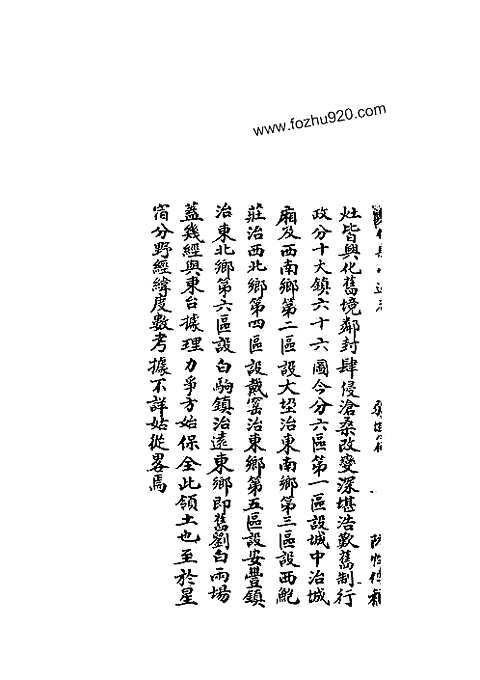 www.fozhu920.com
灶皆興化舊境鄰封肆侵滄桑改變深堪浩歎舊制行
政分十大鎮六十六圖今分六區第一區設城中治城
廂及西南鄉第二區設大垈治東南鄉第三區設西鮑
莊治西北鄉第四區設戴窑治東鄉第五區設安豐鎮
治東北鄉第六區設白駒鎮治遠東鄉即舊劉白兩場
蓋幾經與東台據理力爭方始保全此領土也至於星
宿分野經緯度數考據不詳姑從畧焉